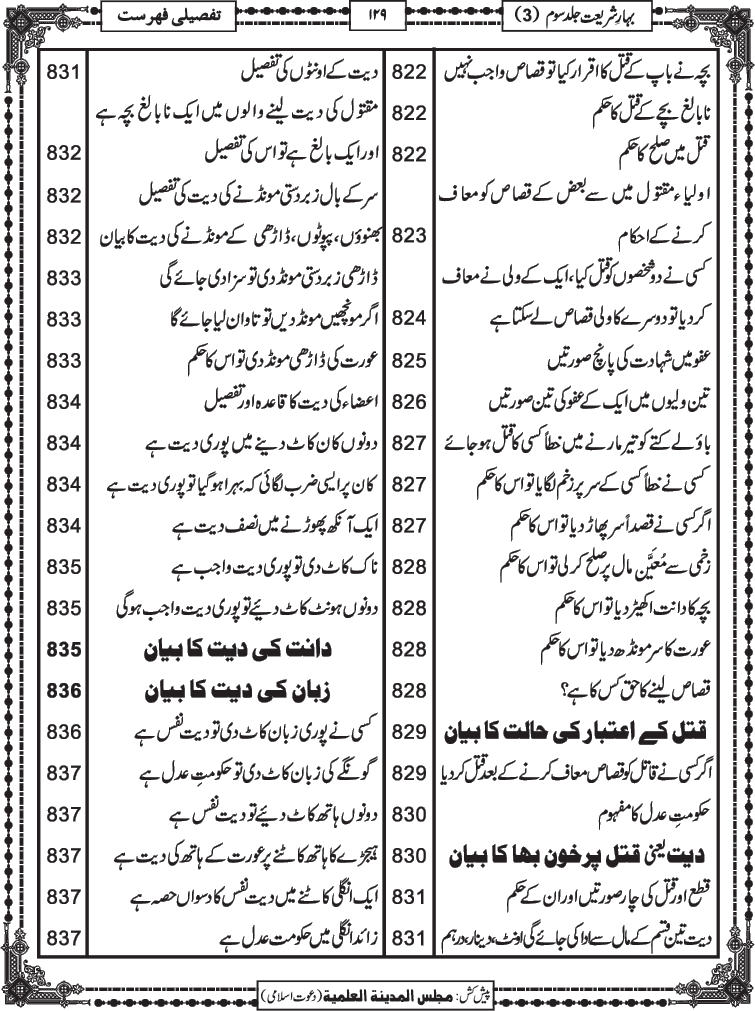 بہارِشریعت جلد سوم (3)
۱۲۹
تفصیلی فہرست
بچہ نے باپ کے قتل کا اقرار کیا تو قصاص واجب نہیں 822
نابالغ بچے کے قتل کا حکم 822
قتل میں صلح کا حکم 822
اولیاء مقتول میں سے بعض کے قصاص کو معاف
کرنے کے احکام 823
کسی نے دو شخصوں کو قتل کیا، ایک کے ولی نے معاف
کردیا تو دوسرے کا ولی قصاص لے سکتا ہے 824
عفو میں شہادت کی پانچ صورتیں 825
تین ولیوں میں ایک کے عفو کی تین صورتیں 826
باؤلے کتے کو تیر مارنے میں خطأً کسی کا قتل ہو جائے 827
کسی نے خطأً کسی کے سر پر زخم لگایا تو اس کا حکم 827
اگر کسی نے قصداً سر پھاڑ دیا تو اس کا حکم 827
زخمی سے مُعَیَّن مال پر صلح کر لی تو اس کا حکم 828
بچہ کا دانت اکھیڑ دیا تو اس کا حکم 828
عورت کا سر مونڈھ دیا تو اس کا حکم 828
قصاص لینے کا حق کس کا ہے؟ 828
قتل کے اعتبار کی حالت کا بیان 829
اگر کسی نے قاتل کو قصاص معاف کرنے کے بعد قتل کر دیا 829
حکومتِ عدل کا مفہوم 830
دیت یعنی قتل پر خون بہا کا بیان 830
قطع اور قتل کی چار صورتیں اور ان کے حکم 831
دیت تین قسم کے مال سے ادا کی جائے گی اونٹ، دینار، درہم 831
دیت کے اونٹوں کی تفصیل 831
مقتول کی دیت لینے والوں میں ایک نابالغ بچہ ہے
اور ایک بالغ ہے تو اس کی تفصیل 832
سر کے بال زبردستی مونڈنے کی دیت کی تفصیل 832
بھنوؤں، پپوٹوں، ڈاڑھی کے مونڈنے کی دیت کا بیان 832
ڈاڑھی زبردستی مونڈ دی تو سزا دی جائے گی 833
اگر مونچھیں مونڈ دیں تو تاوان لیا جائے گا 833
عورت کی ڈاڑھی مونڈ دی تو اس کا حکم 833
اعضاء کی دیت کا قاعدہ اور تفصیل 834
دونوں کان کاٹ دینے میں پوری دیت ہے 834
کان پر ایسی ضرب لگائی کہ بہرا ہو گیا تو پوری دیت ہے 834
ایک آنکھ پھوڑنے میں نصف دیت ہے 834
ناک کاٹ دی تو پوری دیت واجب ہے 835
دونوں ہونٹ کاٹ دیئے تو پوری دیت واجب ہوگی 835
دانت کی دیت کا بیان 835
زبان کی دیت کا بیان 836
کسی نے پوری زبان کاٹ دی تو دیت نفس ہے 836
گونگے کی زبان کاٹ دی تو حکومتِ عدل ہے 837
دونوں ہاتھ کاٹ دیئے تو دیت نفس ہے 837
ہیجڑے کا ہاتھ کاٹنے پر عورت کے ہاتھ کی دیت ہے 837
ایک انگلی کاٹنے میں دیت نفس کا دسواں حصہ ہے 837
زائد انگلی میں حکومت عدل ہے 837
پیش کش: مجلس المدینة العلمیة (دعوت اسلامی)